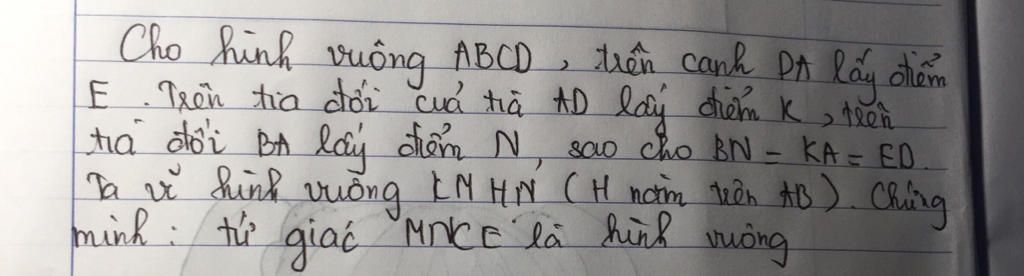 Cho hình vuông ABCD, trên cạnh DA lấy điểm
E. Trên tia đối cuả tia AD lấy điểm K, trên
tia đối BA lấy điểm N, sao cho BN = KA = ED.
Ta vẽ hình vuông KMHN (H nằm trên AB). Chứng
minh: tứ giác MNCE là hình vuông